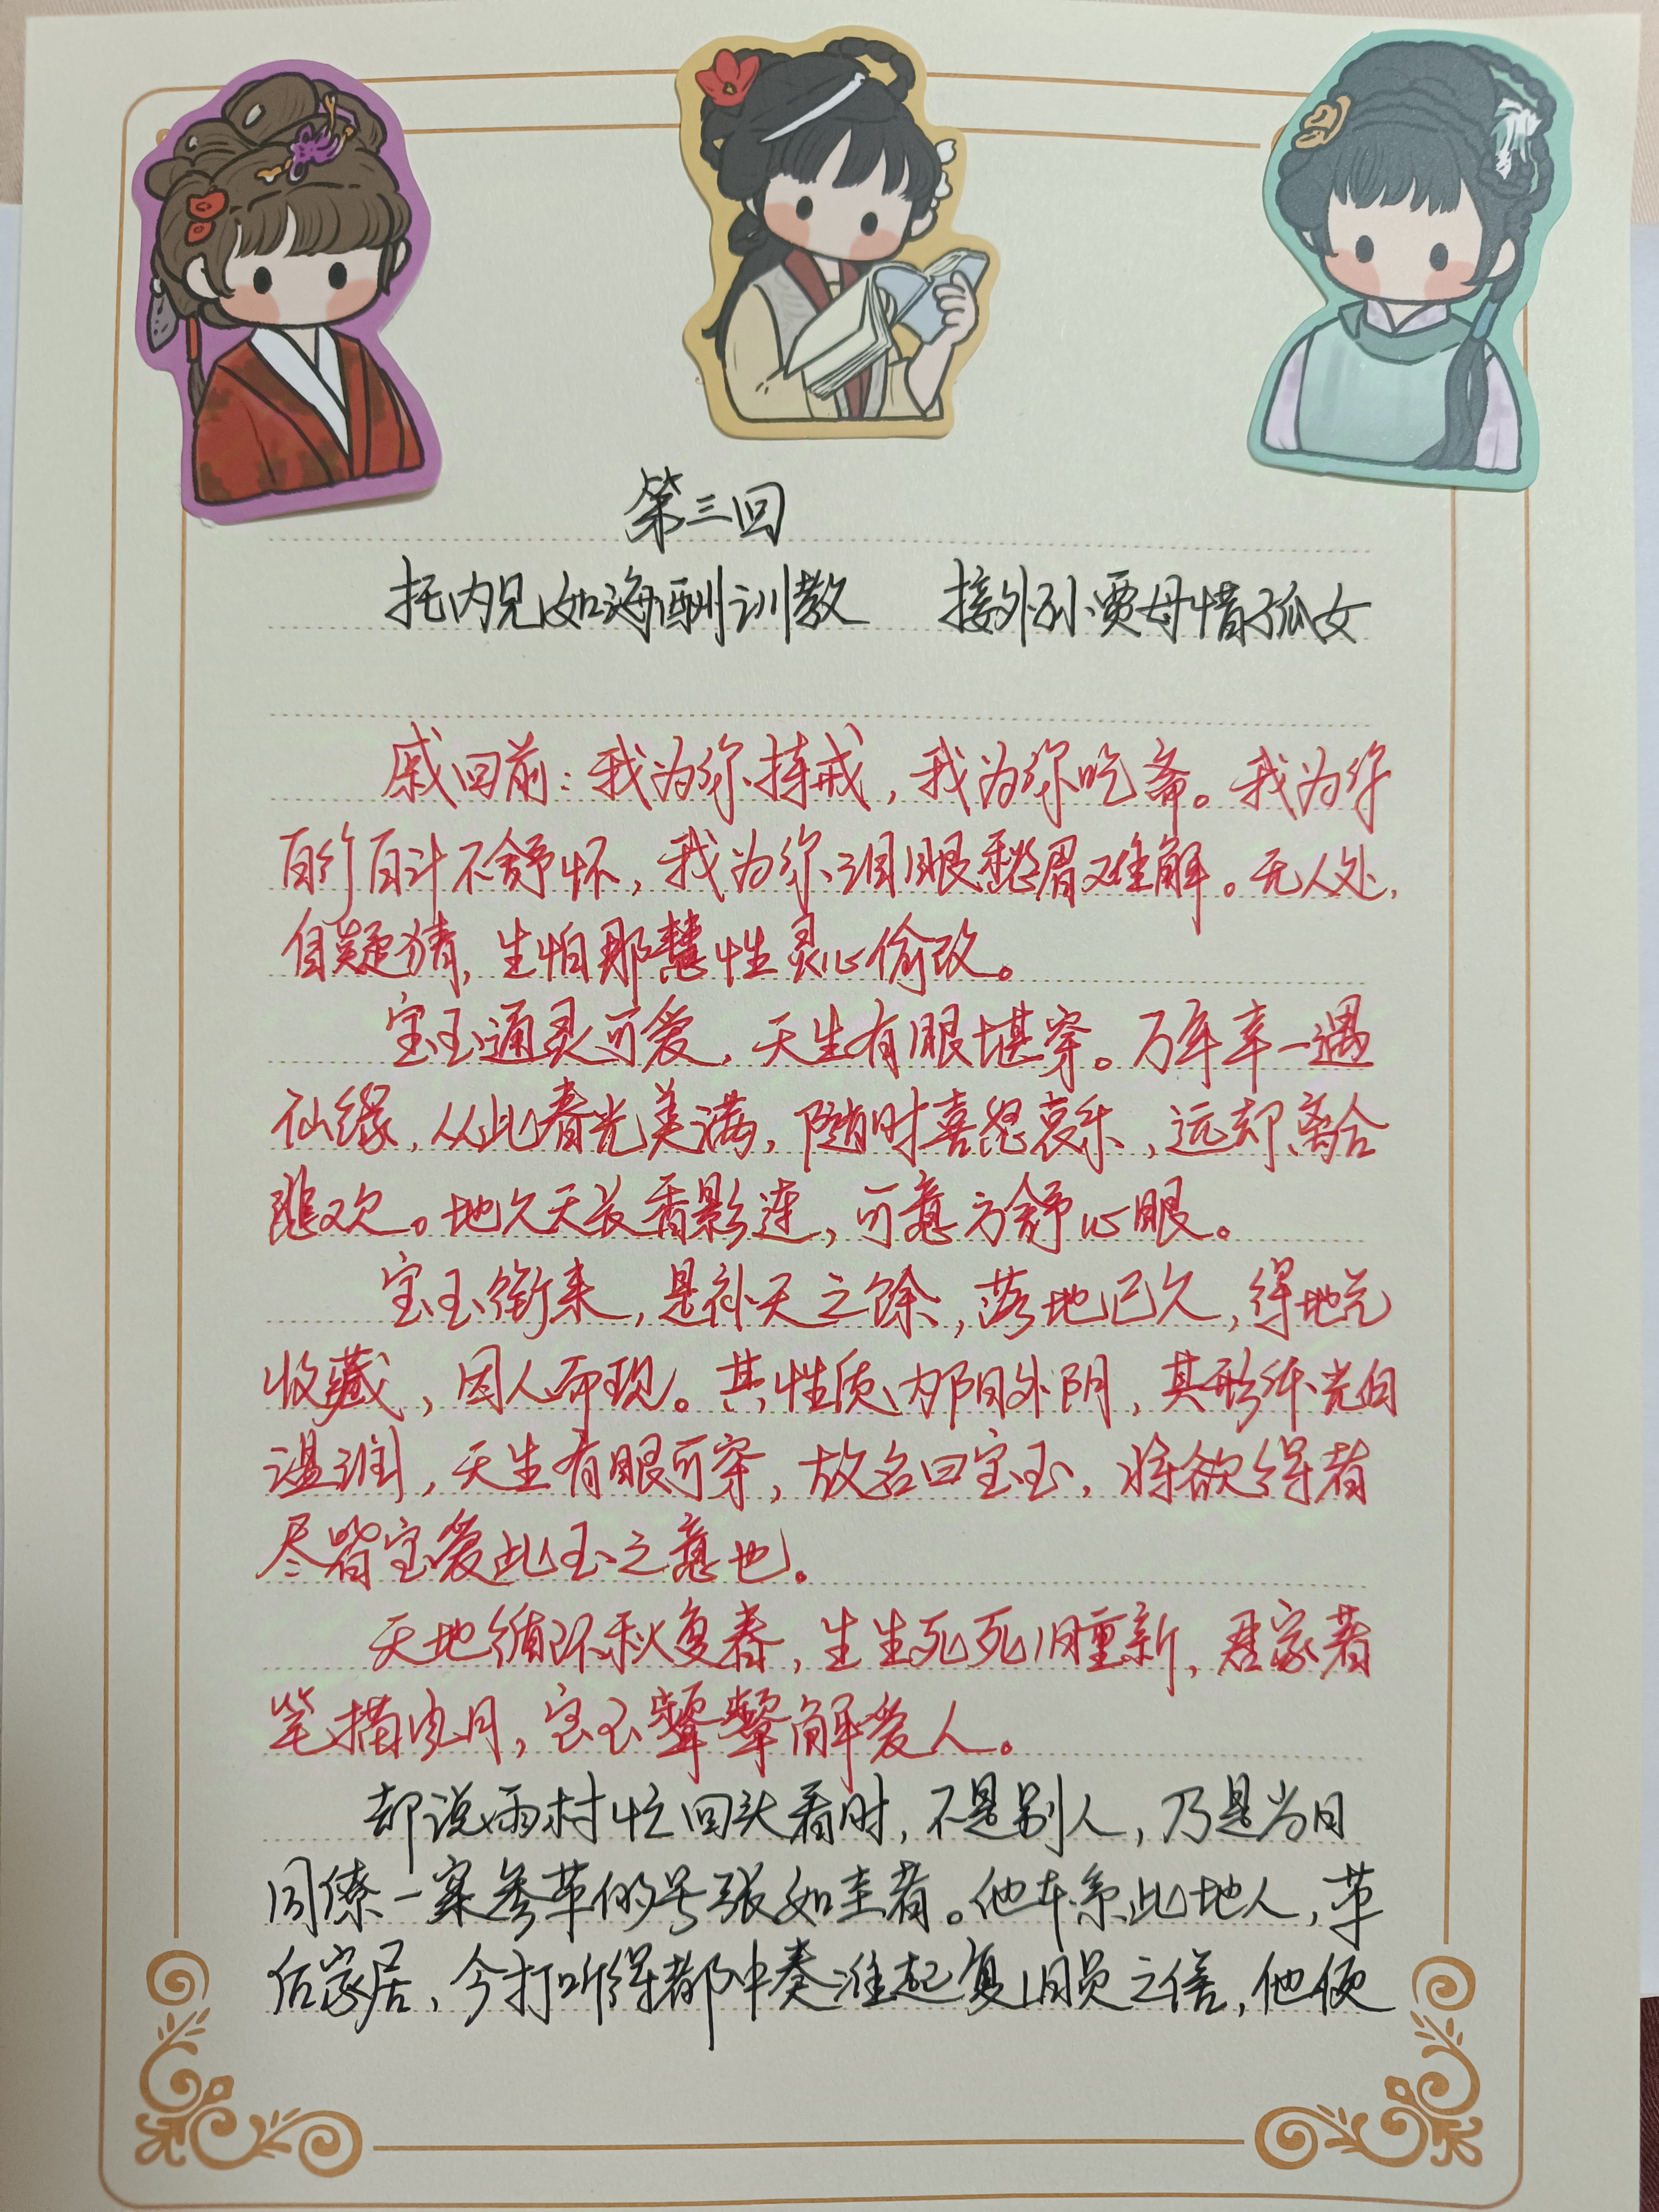 第三回
托内兄如海酬训教 接外孙贾母惜孤女
戚回前：我为你持戒，我为你吃斋。我为你
百行百计不舒怀，我为你泪眼愁眉难解。无人处，
自疑猜，生怕那慧性灵心偷改。
宝玉通灵可爱，天生有眼堪穿。万年幸一遇
仙缘，从此春光美满，随时喜怒哀乐，远却离合
悲欢。地久天长香影连，可意方舒心眼。
宝玉衔来，是补天之余，落地已久，得地气
收藏，因人而现。其性质内阳外阴，其形体光白
温润，天生有眼可穿，故名曰宝玉，将欲得者
尽皆宝爱此玉之意也。
天地循环秋复春，生生死死旧重新，君家著
笔描风月，宝玉颦颦解爱人。
却说雨村忙回头看时，不是别人，乃是当日
同僚一案参革的号张如圭者。他本系此地人，革
后家居，今打听得都中奏准起复旧员之信，他便